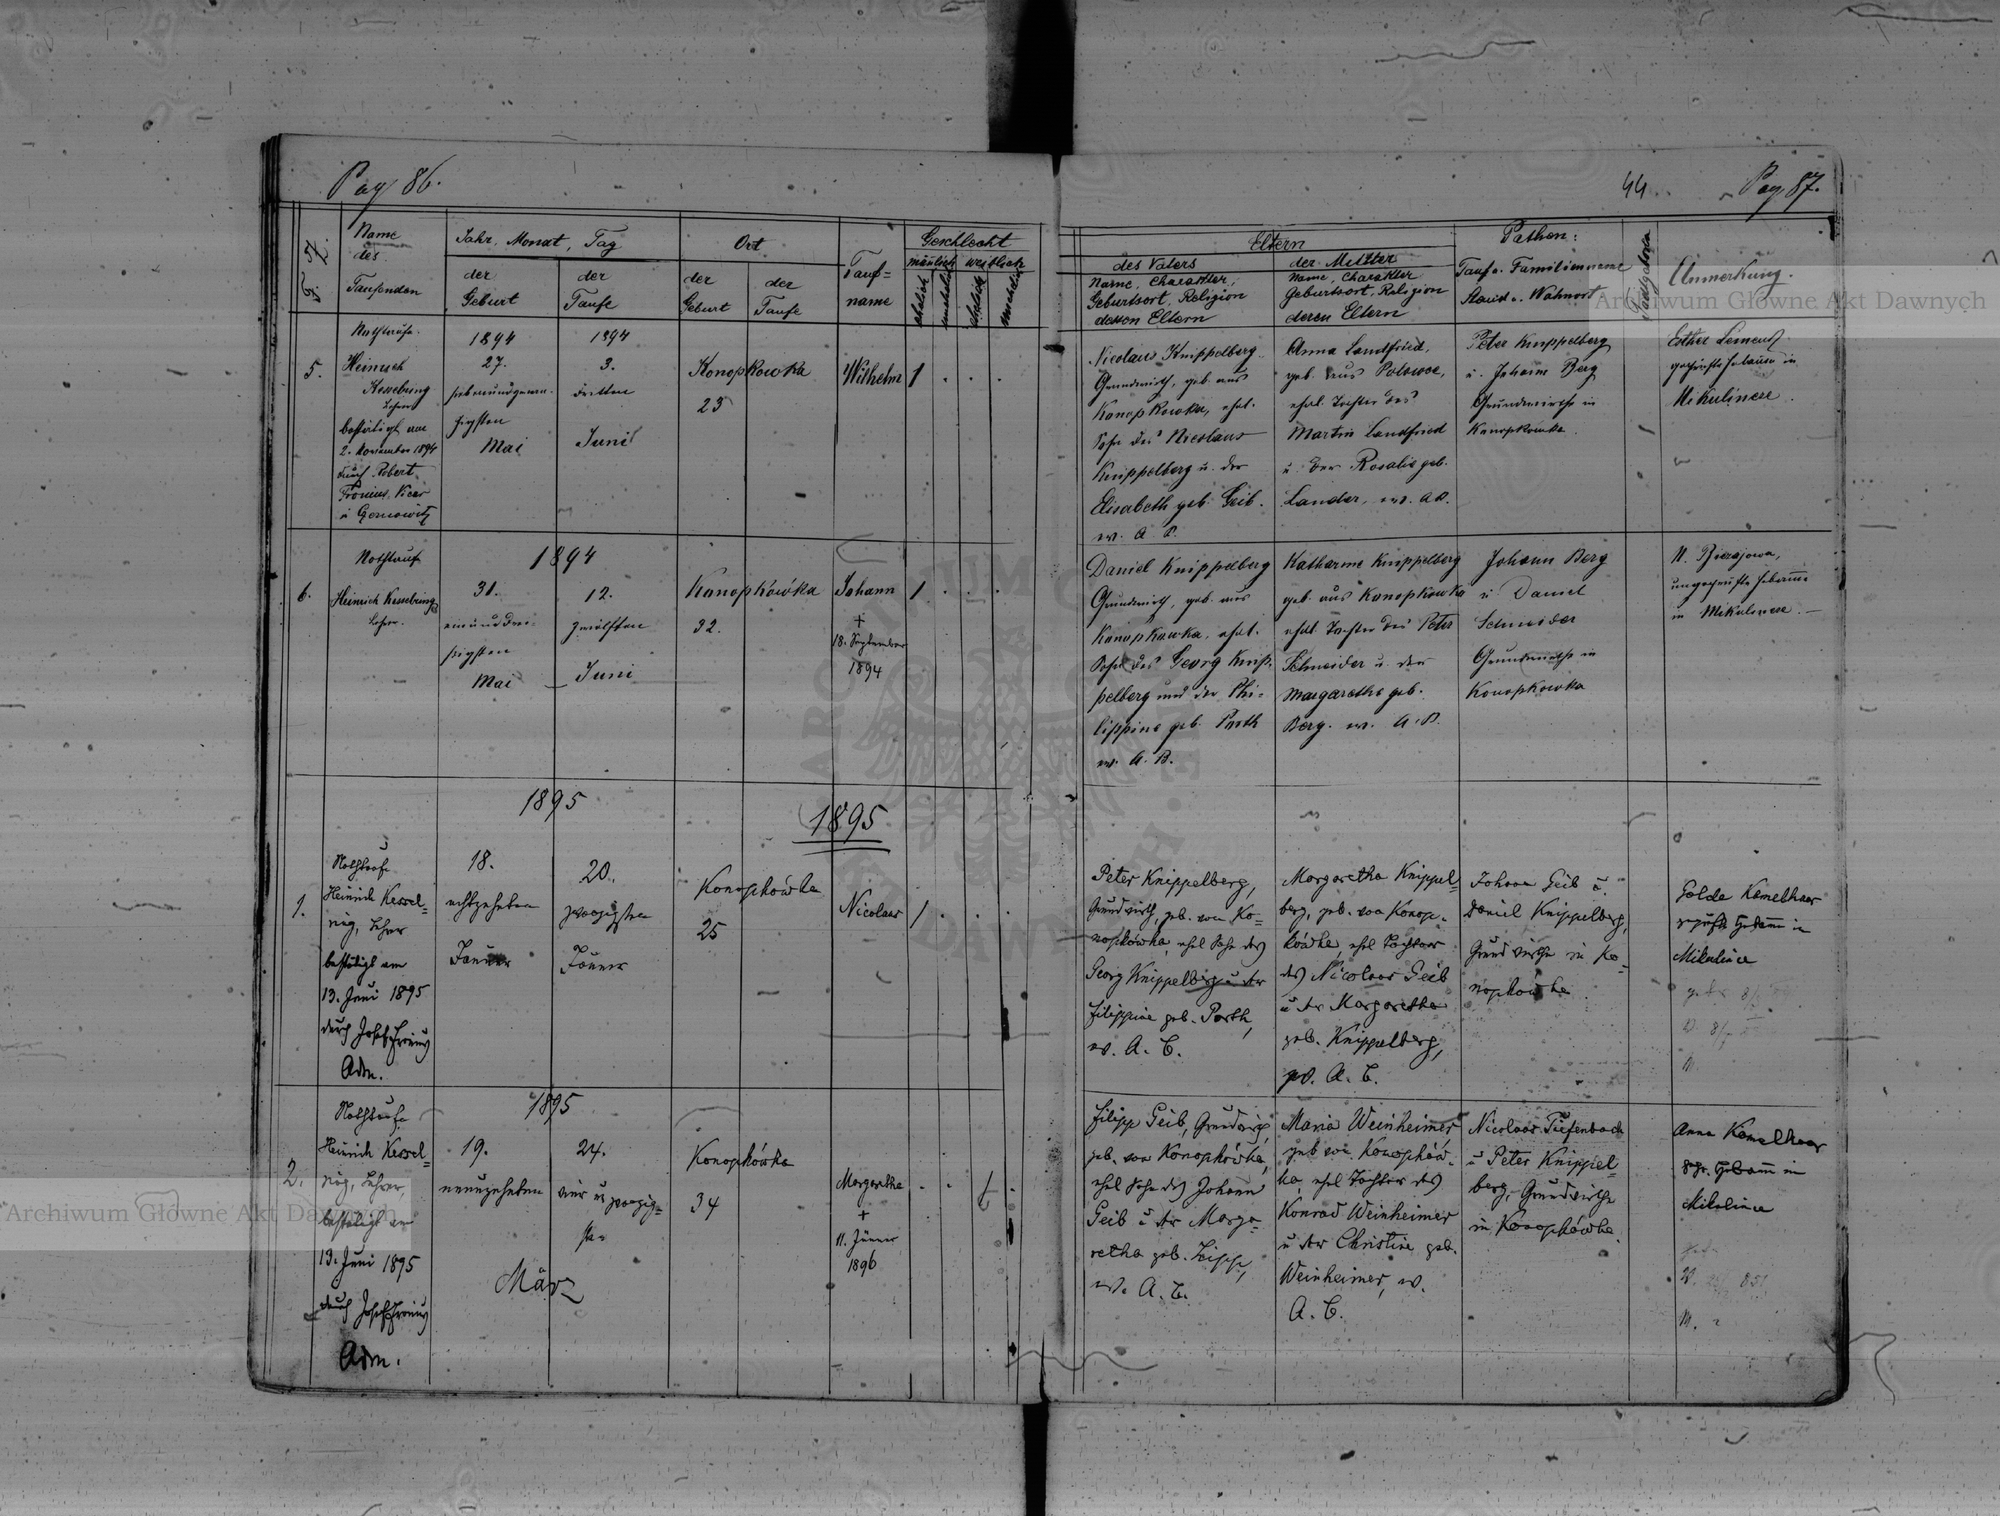 Pag 86.
F. Z.
Name
des
Taufenden
Jahr, Monat, Tag
der
Geburt
der
Taufe
Ort
der
Geburt
der
Taufe
Tauf=
name
Geschlecht
männlich weiblich
ehelich
unehelich
ehelich
unehelich
5.
Nothtaufe.
Heinrich
Kesselring
Lehrer
bestätigt am
2. November 1894
durch Robert
Fronius, Vicar
1894
27.
siebenundzwan-
zigsten
Mai
1894
3.
dritten
Juni
Konopkowka
23
Wilhelm
1
6.
Nothtaufe
Heinrich Kesselring
Lehrer.
1894
31.
einunddrei-
sigsten
Mai
12.
zwölften
Juni
Konopkówka
32.
Johann
+
18. September
1894
1
1895
1895
1.
Nothtaufe
Heinrich Kessel=
ring, Lehrer
bestätigt am
13. Juni 1895
durch Josef Fronius
Adm.
18.
achtzehnten
Jänner
20.
zwanzigsten
Jänner
Konopkówka
25
Nicolaus
1
2.
Nothtaufe
Heinrich Kessel=
ring, Lehrer,
bestätigt am
13. Juni 1895
durch Josef Fronius
Adm.
1895
19.
neunzehnten
24.
vier u zwanzig=
sten
März
Konopkówka
34
Margaretha
+
11. Jänner
1896
44
Pag. 87.
Eltern
des Vaters
Name, Charakter,
Geburtsort, Religion
dessen Eltern
der Mutter
Name, Charakter
Geburtsort, Religion
deren Eltern
Pathen:
Tauf u. Familienname
Stand u. Wohnort
Anmerkung.
Nicolaus Knippelberg
Grundwirth, geb. aus
Konopkowka, ehel.
Sohn des Nicolaus
Knippelberg u. der
Elisabeth geb. Geib.
ev. A. B.
Anna Landfried,
geb. aus
ehel. Tochter des
Martin Landfried
u. der Rosalie geb.
Lander, ev. A.B.
Peter Knippelberg
u. Johann Berg
Grundwirthe in
Konopkowka.
Esther
geprüfte Hebamme in
Mikulince.
Daniel Knippelberg
Grundwirth, geb. aus
Konopkowka, ehel.
Sohn des Georg Knip-
pelberg und der Phi-
lippine geb. Parth
ev. A. B.
Katharine Knippelberg
geb. aus Konopkowka
ehel. Tochter des Peter
Schneider u. der
Margarethe geb.
Berg. ev. A. B.
Johann Berg
u Daniel
Schneider
Grundwirthe in
Konopkowka
N.
ungeprüfte Hebamme
in Mikulince.
Peter Knippelberg,
Grundwirth, geb. von Ko=
nopkówka, ehel. Sohn des
Georg Knippelberg u der
Filippine geb. Parth,
ev. A. B.
Margaretha Knippel=
berg, geb. von Konop=
kówka, ehel Tochter
des Nicolaus Geib
u der Margaretha
geb. Knippelberg,
ev. A. B.
Johann Geib u.
Daniel Knippelberg,
Grundwirthe in Ko=
nopkówka.
Golda Kamelhaar
geprüfte Hebamme in
Mikulince
Filipp Geib, Grundwirth,
geb. von Konopkówka,
ehel Sohn des Johann
Geib u der Marga=
retha geb. Zipp,
ev. A. B.
Maria Weinheimer
geb von Konopków=
ka, ehel Tochter des
Konrad Weinheimer
u der Christine geb.
Weinheimer, ev.
A. B.
Nicolaus Tiefenbach
u Peter Knippel=
berg, Grundwirthe
in Konopkówka.
Anna Kamelhaar
gepr. Hebamme in
Mikulince
Archiwum Główne Akt Dawnych
Archiwum Główne Akt Dawnych